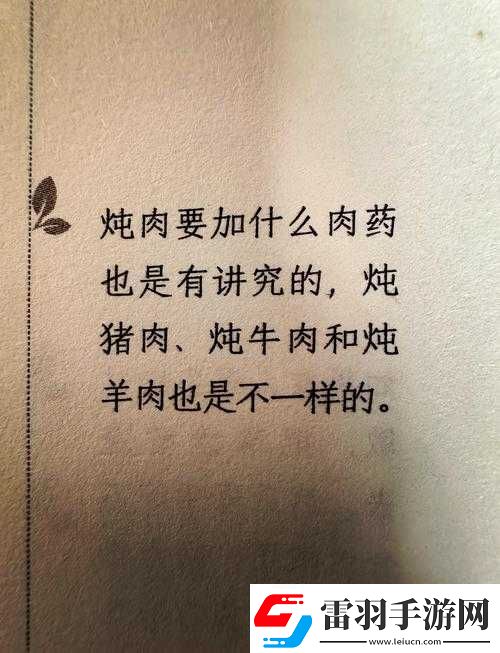 炖肉要加什么肉药
也是有讲究的，炖
猪肉、炖牛肉和炖
羊肉也是不一样的。
雷羽手游网
www.leiucn.com